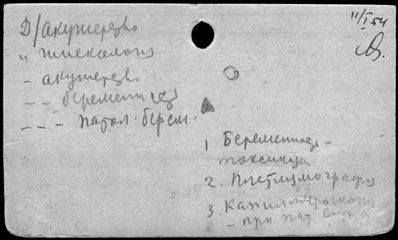 Д/акушерство
" гинекология
- акушерство
- - беременность
- - - патол. берем.
11/I 54
1 Беременность -
токсикозы
2. Плетизмография
3. Капилляроскопия
- при пат.